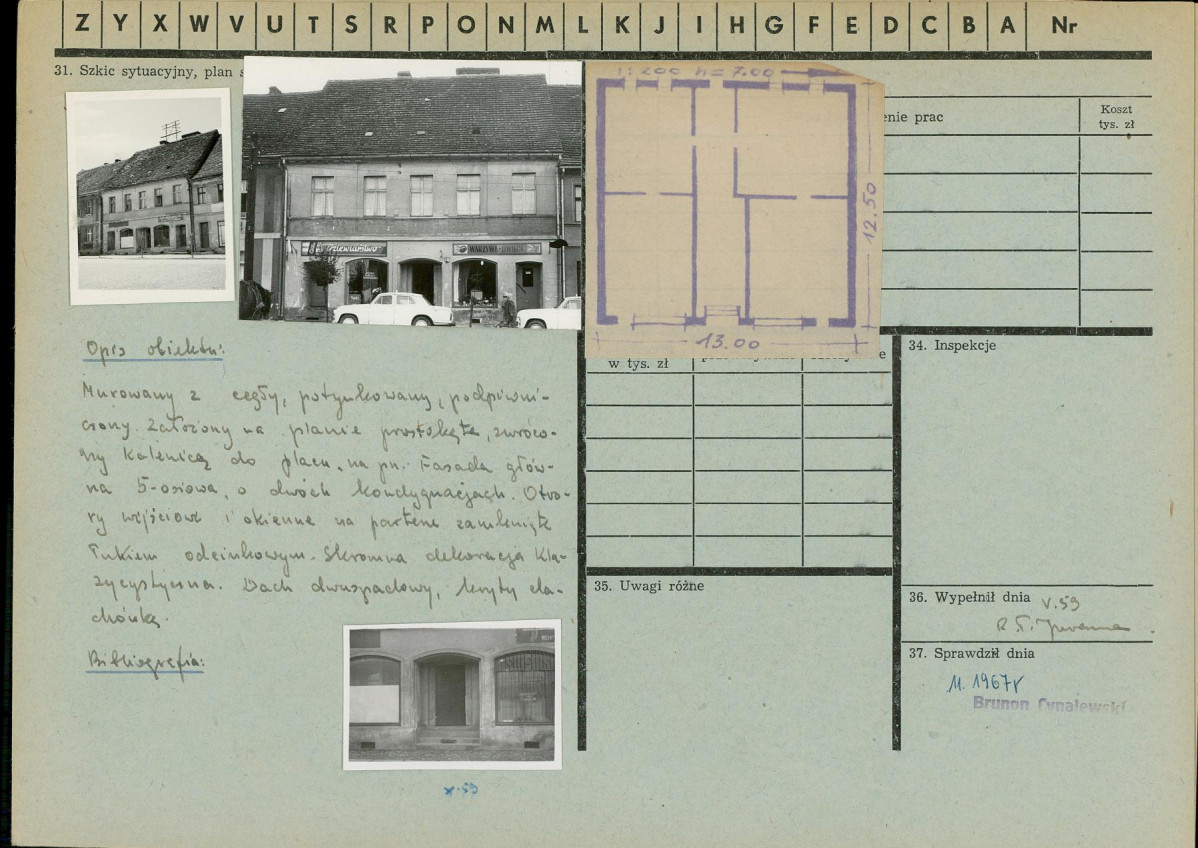 Z Y X W V U T S R P O N M L K J I H G F E D C B A Nr
31. Szkic sytuacyjny, plan
1:200 h=7.00
12.50
13.00
enie prac
Koszt
tys. zł
WARZYWA-OWOCE
w tys. zł
e
Opis obiektu:
Murowany z cegły, potynkowany, podpiwni-
czony. Założony na planie prostokąta, zwróco-
ny kalenicą do placu, na pn. Fasada głów-
na 5-osiowa, o dwóch kondygnacjach. Otwo-
ry wejściowe i okienne na parterze zamknięte
łukiem odcinkowym. Skromna dekoracja kla-
zycystyczna. Dach dwuspadowy, kryty da-
chówką.
Bibliografia:
X.59
34. Inspekcje
35. Uwagi różne
36. Wypełnił dnia V.59
37. Sprawdził dnia
11. 1967r
Brunon Cynalewski